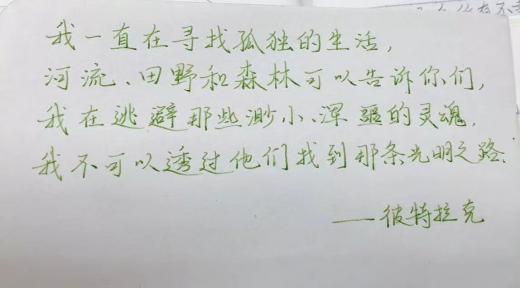 我一直在寻找孤独的生活，
河流、田野和森林可以告诉你们，
我在逃避那些渺小、浑噩的灵魂，
我不可以透过他们找到那条光明之路.
——彼特拉克